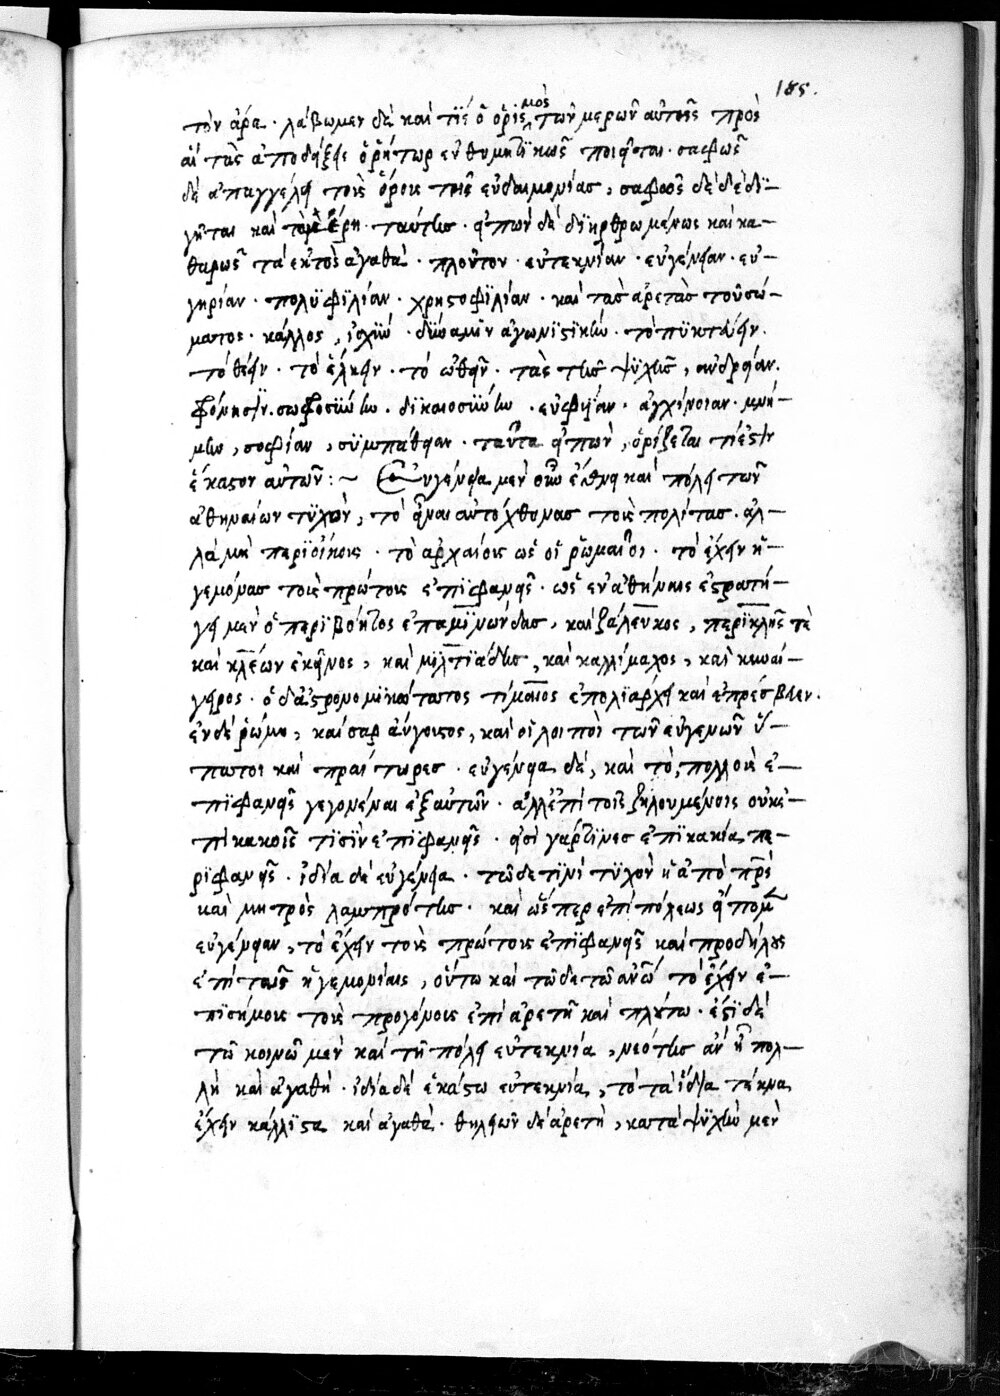 185.
τὸν ἄρα · λάβωμεν δὲ καὶ τίς ὁ ὁρισμὸς τῶν μερῶν αὐτῆς πρὸς
ἃ τὰς ἀποδείξεις ὁ ῥήτωρ ἐνθυμητικῶς ποιεῖται · σαφῶς
δὲ ἀπαγγέλει τοὺς ὅρους τῆς εὐδαιμονίας, σαφῶς δὲ δέδι-
γεῖται καὶ τὰ μέρη ταύτης · εἰπὼν δὲ διηρθρωμένως καὶ κα-
θαρῶς τὰ ἐκτὸς ἀγαθὰ · πλοῦτον · εὐτεκνίαν · εὐγένειαν · εὐ-
γηρίαν · πολυφιλίαν · χρηστοφιλίαν · καὶ τὰς ἀρετὰς τοῦ σώ-
ματος · κάλλος, ἰσχὺν · δύναμιν ἀγωνιστικὴν · τὸ πυκτεύειν ·
τὸ θέειν · τὸ ἕλκειν · τὸ ὠθεῖν · τὰς τῆς ψυχῆς, ἀνδρείαν ·
φρόνησιν · σωφροσύνην · δικαιοσύνην · εὐφυΐαν · ἀγχίνοιαν · μνή-
μην, σοφίαν, συμπάθειαν · ταῦτα εἰπὼν, ὁρίζεται τί ἐστιν
ἕκαστον αὐτῶν :~ Εὐγένεια μὲν οὖν ἔθνει καὶ πόλει τῶν
ἀθηναίων τυχὸν, τὸ εἶναι αὐτόχθονας τοὺς πολίτας · ἀλ-
λὰ μὴ περιοίκους · τὸ ἀρχαίους ὡς οἱ ῥωμαῖοι · τὸ ἔχειν ἡ-
γεμόνας τοὺς πρώτους ἐπιφανεῖς · ὡς ἐν ἀθήναις ἐστρατή-
γει μὲν ὁ περιβόητος ἐπαμινώνδας, καὶ ζάλευκος, περικλῆς τὲ
καὶ κλέων ἐκεῖνος, καὶ μιλτιάδης, καὶ καλλίμαχος, καὶ κυναί-
γειρος · ὁ δ' ἀστρονομικώτατος τίμαιος ἐπολιάρχει καὶ ἐπρέσβευεν ·
ἐν δὲ ῥώμη, καῖσαρ αὔγουστος, καὶ οἱ λοιποὶ τῶν εὐγενῶν ὕ-
πατοι καὶ πραίτωρες · εὐγένεια δὲ, καὶ τὸ, πολλοὺς ἐ-
πιφανεῖς γεγονέναι ἐξ αὐτῶν · ἀλλ' ἐπὶ τοῖς ζηλουμένοις οὐκ ἐ-
πὶ κακοῖς τισὶν ἐπιφανεῖς · εἰσὶ γάρ τινες ἐπὶ κακία πε-
ριφανεῖς · ἰδία δὲ εὐγένεια · τῶδε τινὶ τυχὸν ἡ ἀπὸ πρς
καὶ μητρὸς λαμπρότης · καὶ ὥσπερ ἐπὶ πόλεως εἴπομεν
εὐγένειαν, τὸ ἔχειν τοὺς πρώτους ἐπιφανεῖς καὶ προδήλους
ἐπὶ ταῖς ἡγεμονίαις, οὕτω καὶ τῶδε τῶ ἀνω τὸ ἔχειν ἐ-
πισήμους τοὺς προγόνους ἐπὶ ἀρετῆ καὶ πλούτω · ἔστι δὲ
τῶ κοινῶ μὲν καὶ τῆ πόλει εὐτεκνία, νεότης ἂν ἦ πολ-
λὴ καὶ ἀγαθὴ · ἰδία δὲ ἑκάστω εὐτεκνία, τὸ τὰ ἴδια τέκνα
ἔχειν κάλλιστα καὶ ἀγαθὰ · θηλειῶν δὲ ἀρετὴ, κατὰ ψυχὴν μὲν